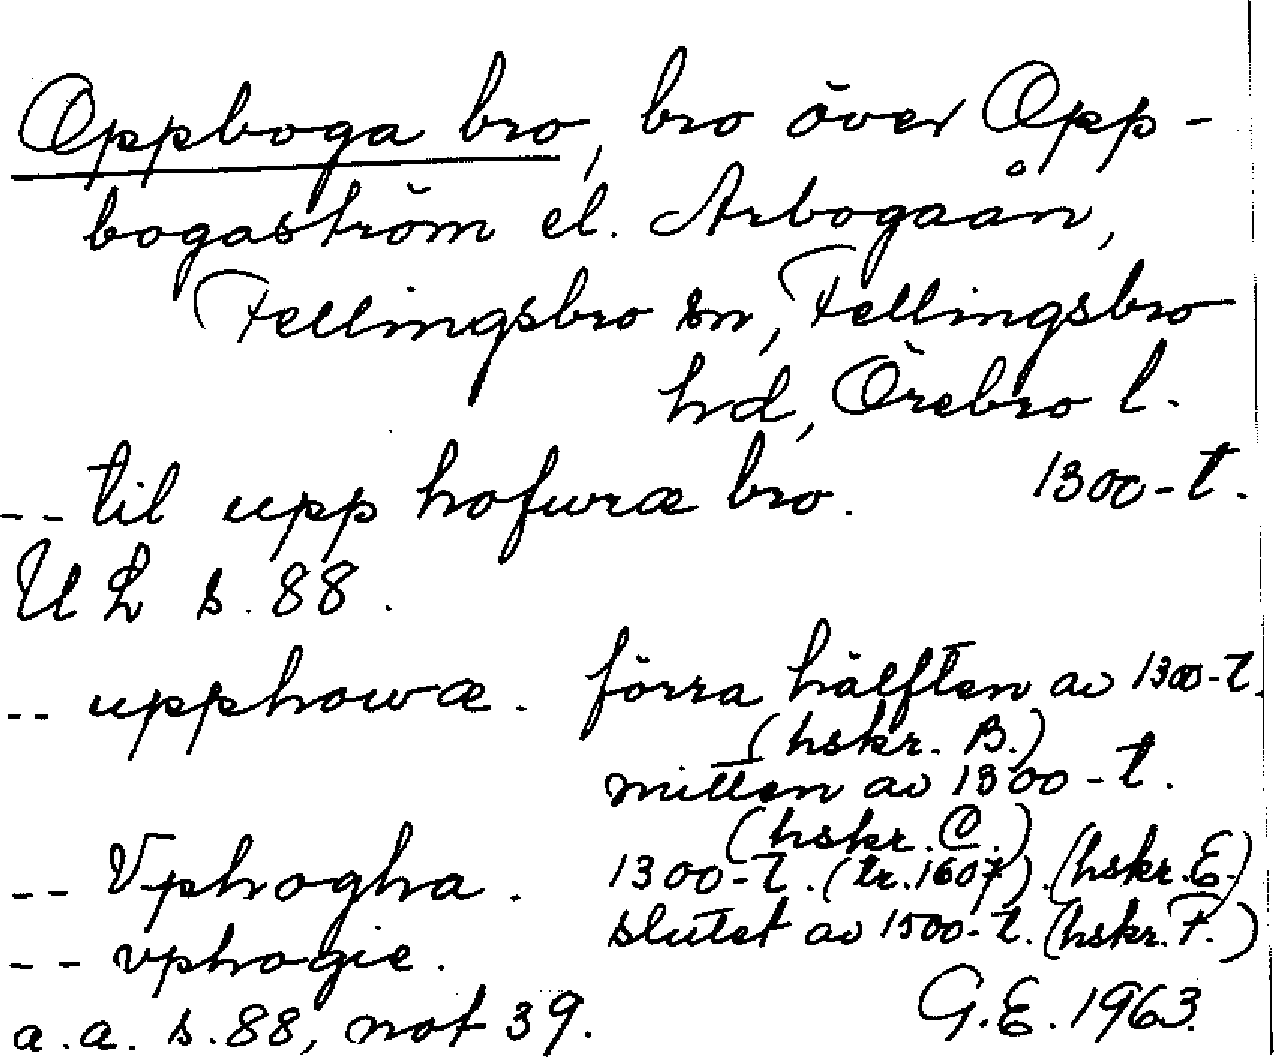 Oppboga bro, bro över Opp-
bogaström el. Arbogaån,
Fellingsbro sn, Fellingsbro
hd, Örebro l.
-- til upp hofwræ bro. 1300-t.
UL s. 88.
-- upphowæ. förra hälften av 1300-t.
(hskr. B.)
mitten av 1300-t.
(hskr. C.)
-- Vphogha. 1300-t. (tr. 1607). (hskr. E.)
-- vphogie. slutet av 1500-t. (hskr. F.)
a.a. s. 88, not 39. G.E. 1963.